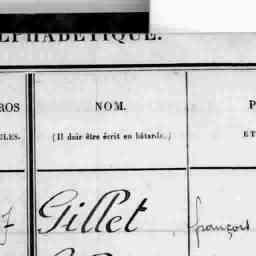 ALPHABÉTIQUE.
ROS NOM. P
(Il doit être écrit en bâtarde.) ET
Gillet françois